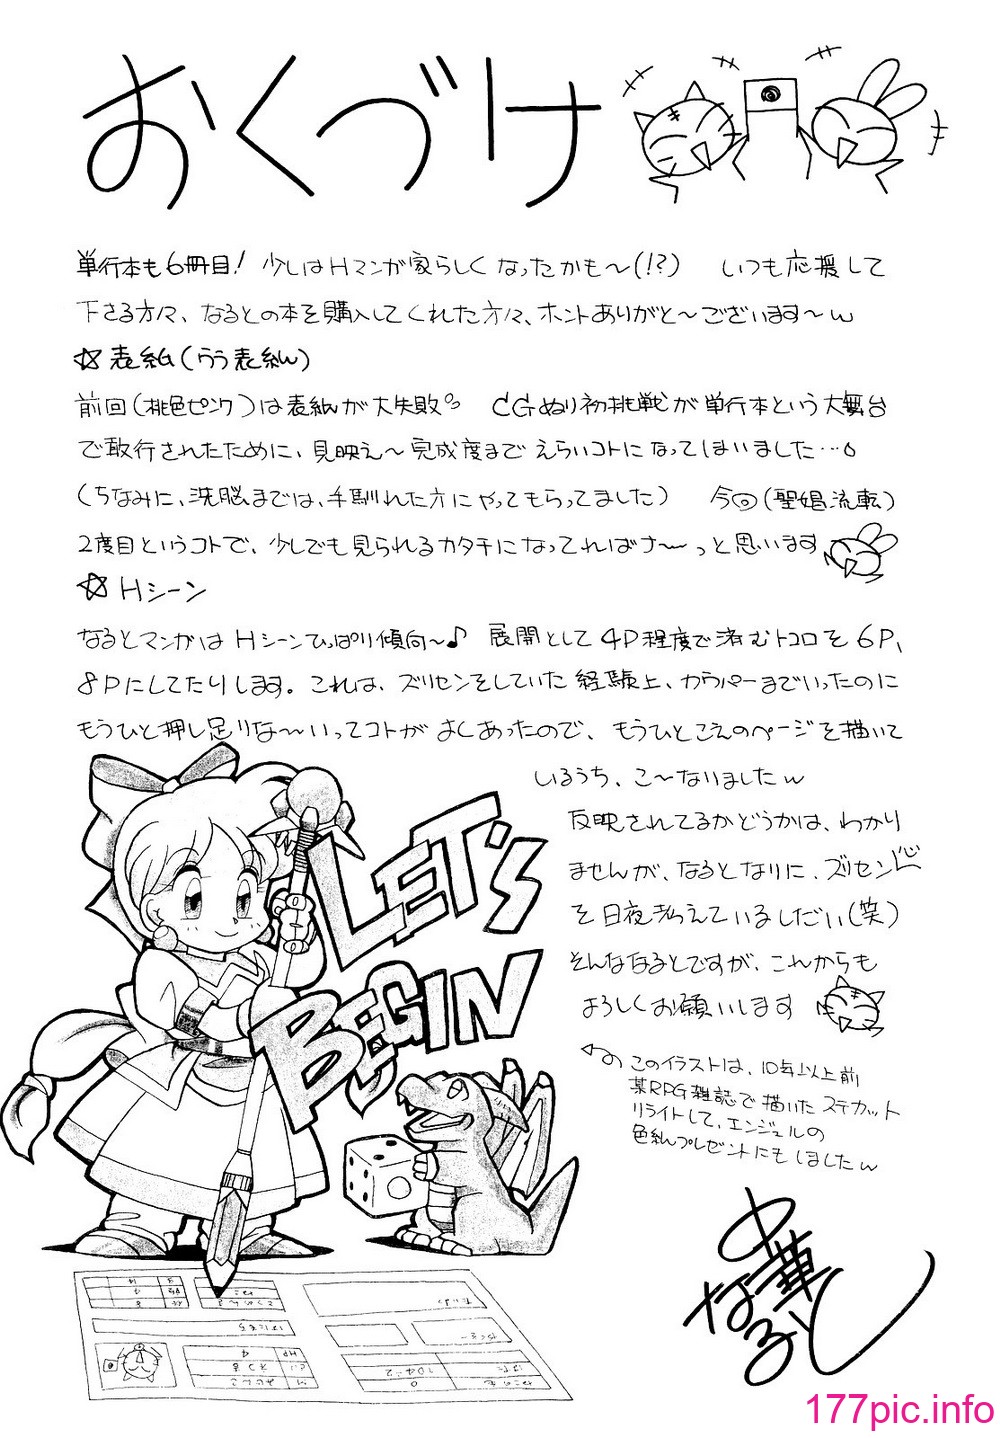 おくづけ
単行本も6冊目! 少しはHマンガ家らしくなったかも〜(!?) いつも応援して
下さる方々、なるとの本を購入してくれた方々、ホントありがと〜ございます〜w
☆表紙(うう表紙)
前回(桃色ピンク)は表紙が大失敗 CGぬり初挑戦が単行本という大舞台
で敢行されたために、見映え〜完成度までえらいコトになってしまいました…。
(ちなみに、洗脳までは、手馴れた方にやってもらってました) 今回(聖娼流転)
2度目というコトで、少しでも見られるカタチになってればナ〜っと思います
☆Hシーン
なるとマンガはHシーンひっぱり傾向〜♪ 展開として4P程度で済むトコロを6P、
8Pにしてたりします。これは、ズリセンをしていた経験上、カウパーまでいったのに
もうひと押し足りな〜いってコトがよくあったので、もうひとこえのページを描いて
いるうち、こ〜なりましたw
反映されてるかどうかは、わかり
ませんが、なるとなりに、ズリセン
を日夜考えているしだい(笑)
そんななるとですが、これからも
よろしくお願いします
LET'S
BEGIN
このイラストは、10年以上前
某RPG雑誌で描いたステカット
リライトして、エンジェルの
色紙プレゼントにもしましたw
中華
なると
HP
177pic.info